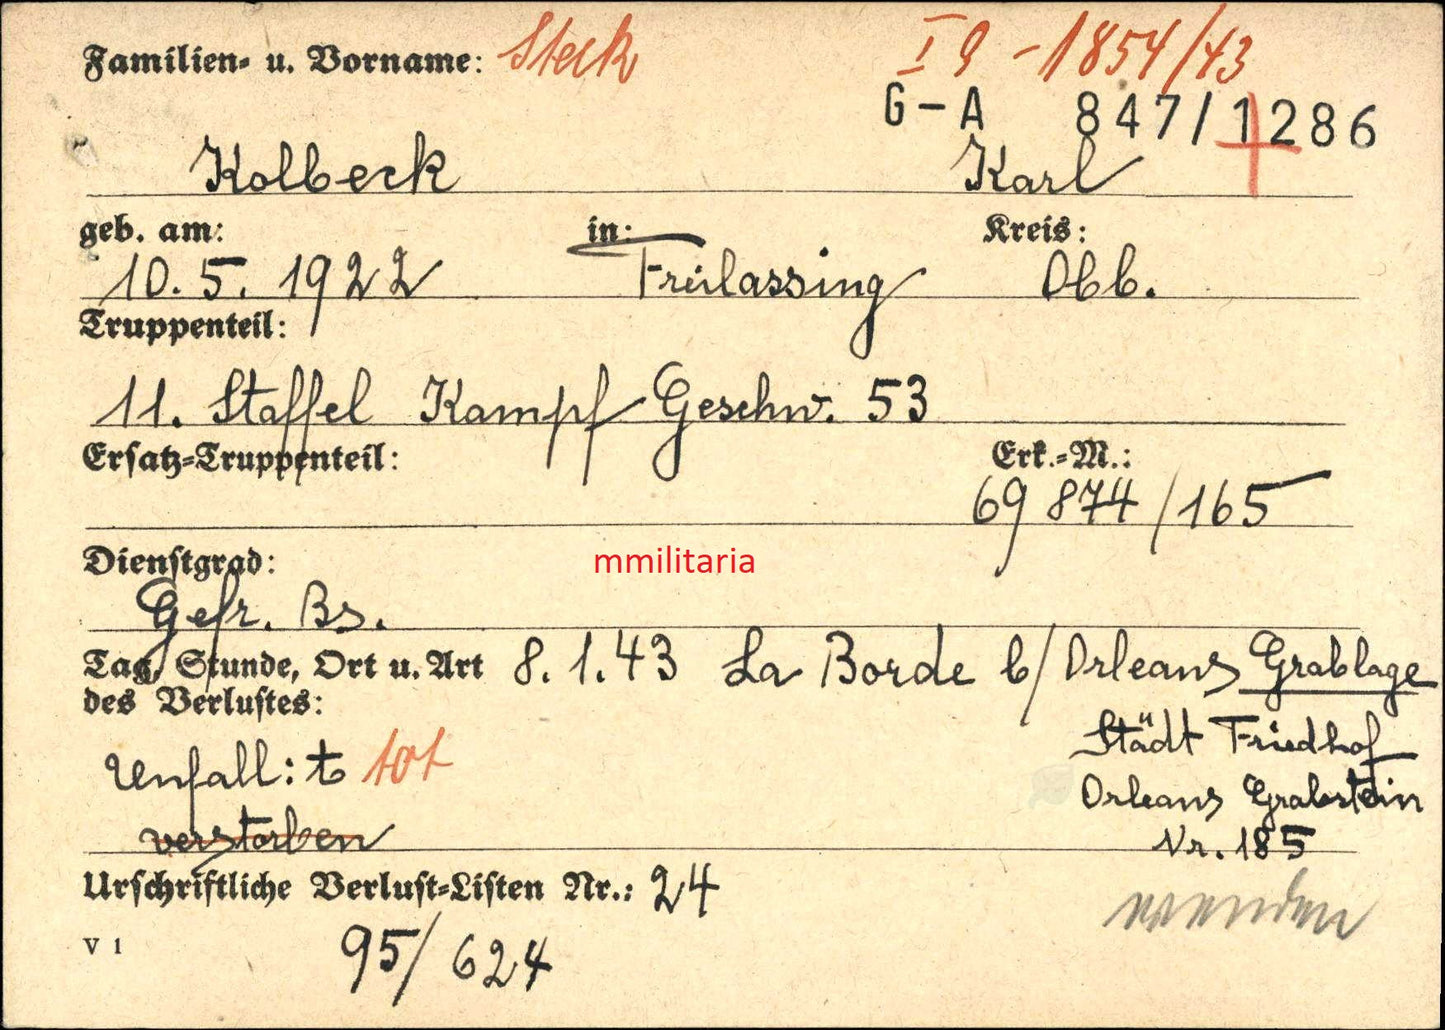 Familien- u. Vorname: Steck I 9 - 1854/43
G-A 847/1286
Kolbeck Karl
geb. am: in: Kreis:
10. 5. 1922 Freilassing Obb.
Truppenteil:
11. Staffel Kampf Geschw. 53
Ersatz-Truppenteil: Erk.-M.:
69 874 /165
Dienstgrad:
mmilitaria
Gefr. Bs.
Tag, Stunde, Ort u. Art 8. 1. 43 La Borde b/ Orleans Grablage
des Verlustes:
Städt Friedhof
Unfall: t tot
Orleans Grabstein
verstorben Nr. 185
Urschriftliche Verlust-Listen Nr.: 24
wenden
V 1 95/ 624